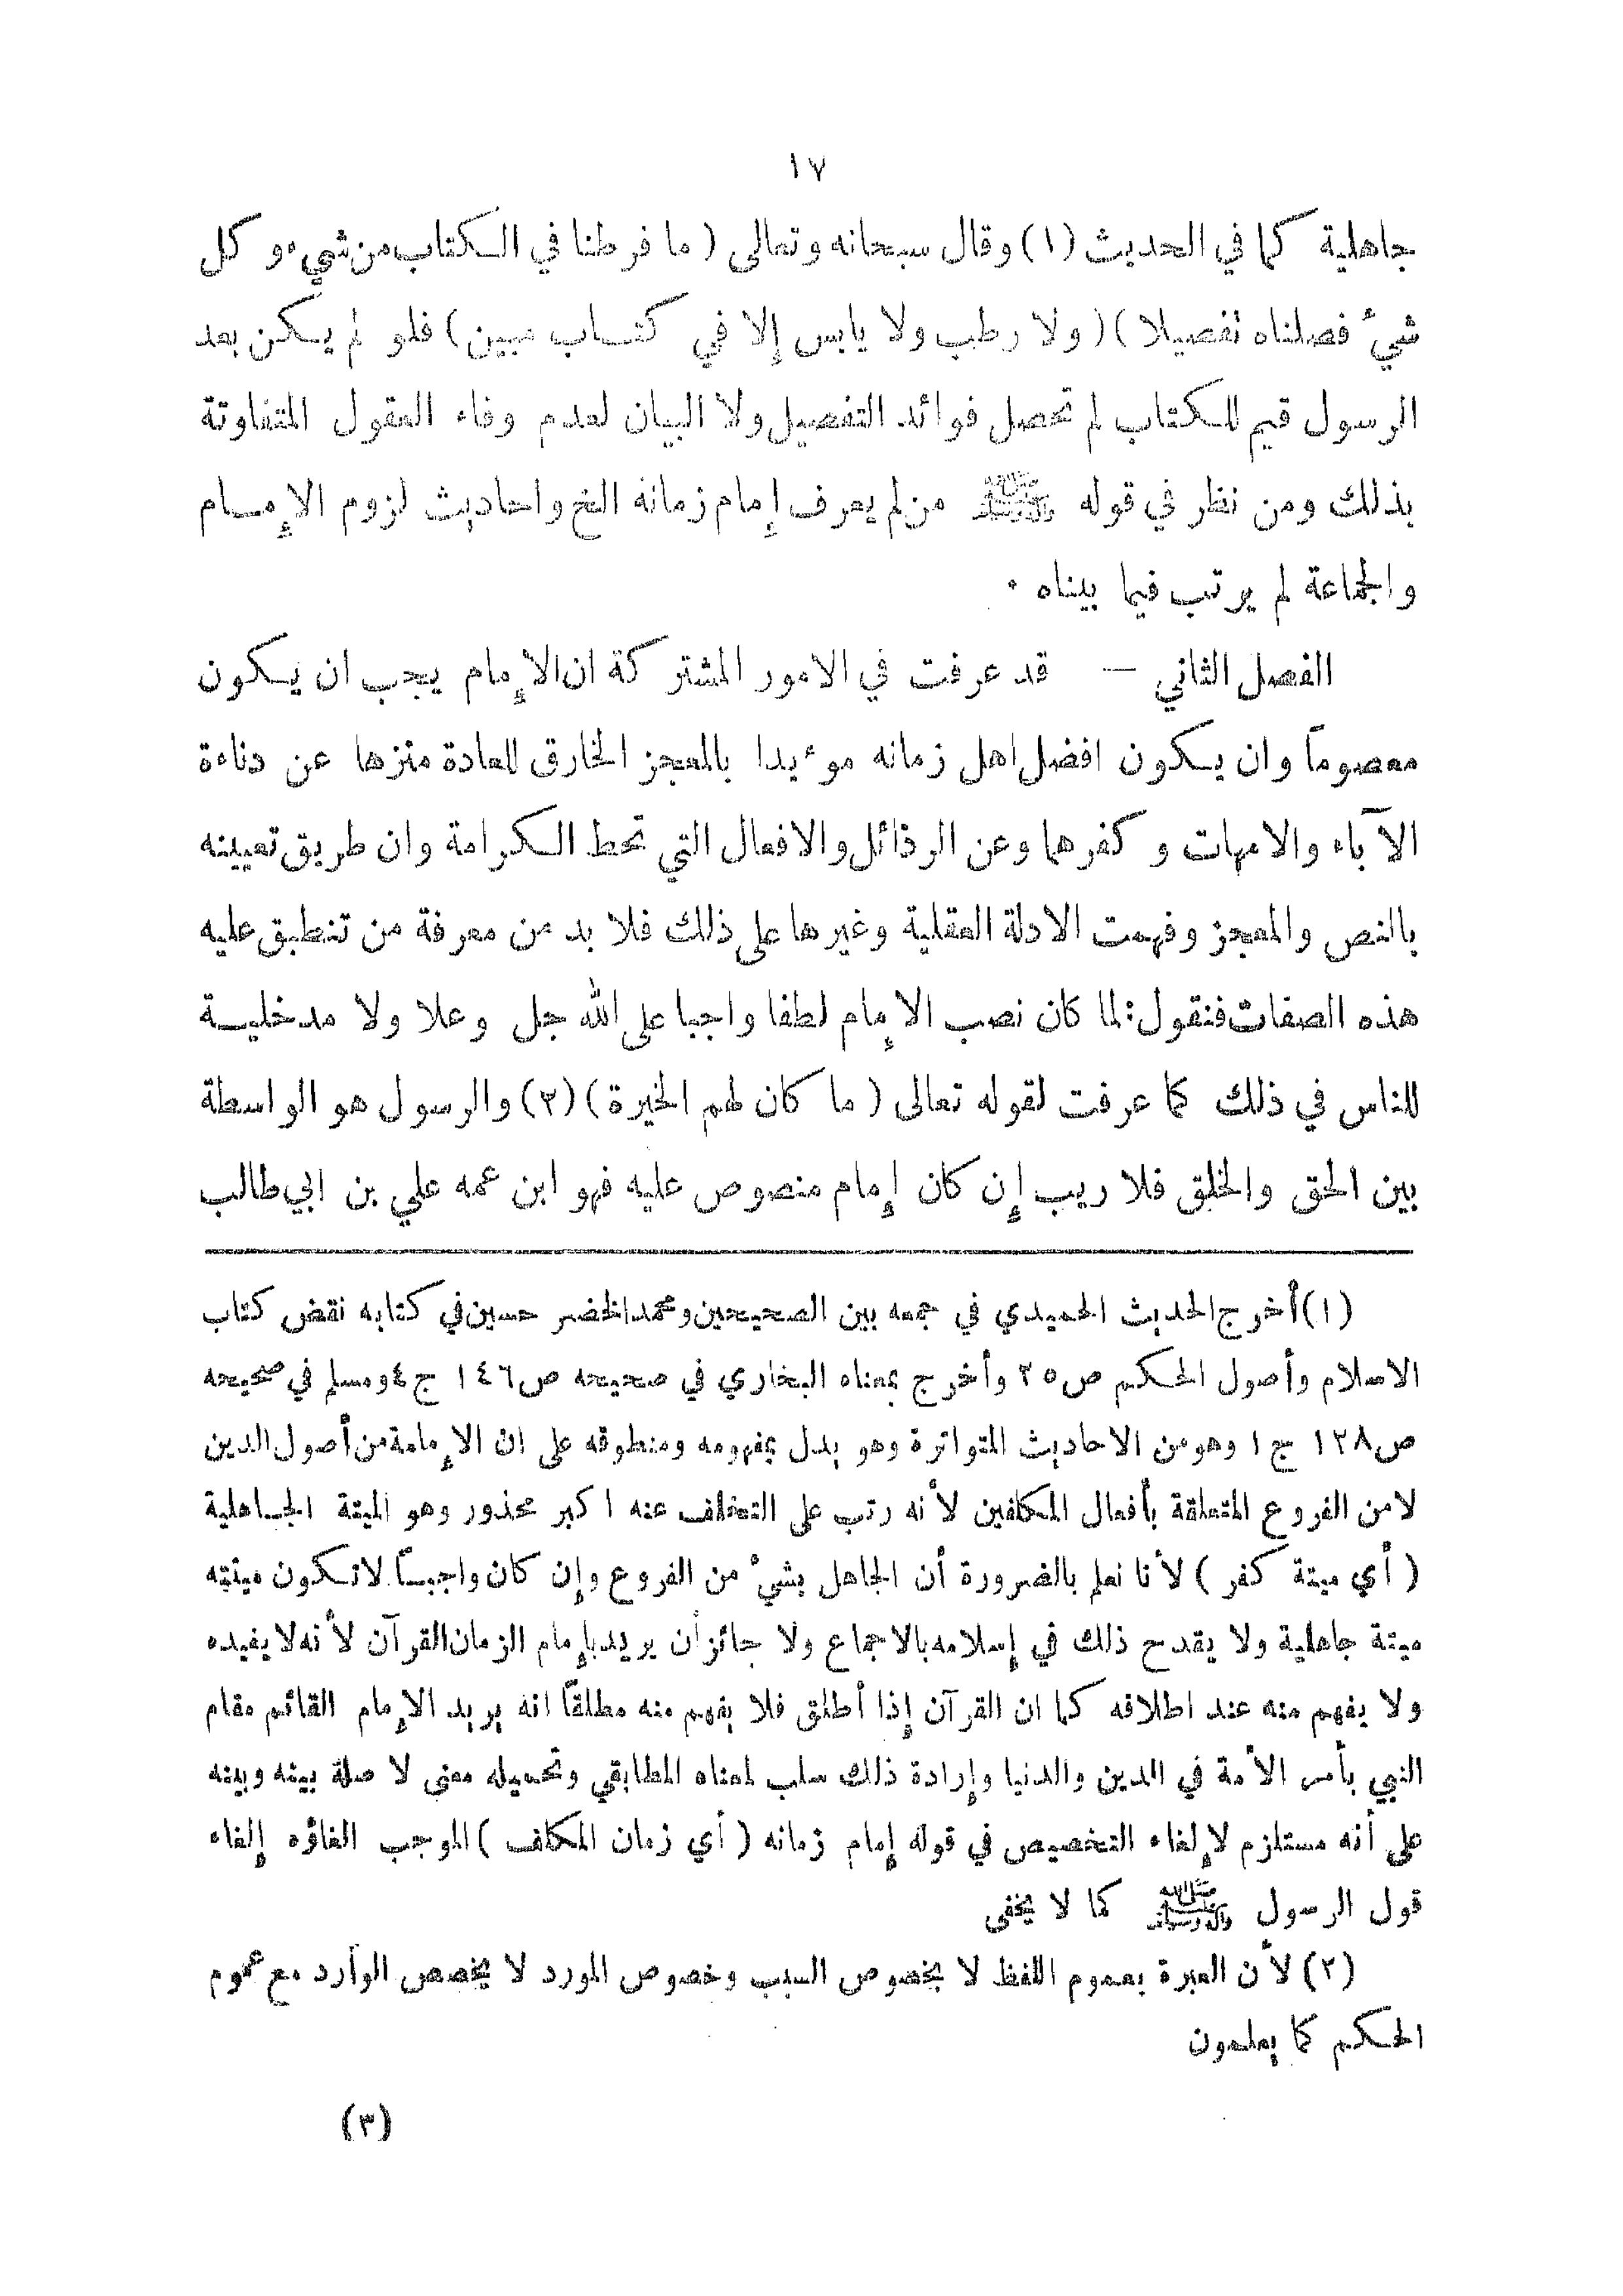 ١٧
جاهلية كما في الحديث (١) وقال سبحانه وتعالى (ما فرطنا في الكتاب من شيء و كل
شيء فصلناه تفصيلا) (ولا رطب ولا يابس إلا في كتاب مبين) فلو لم يكن بعد
الرسول قيم للكتاب لم تحصل فوائد التفصيل ولا البيان لعدم وفاء العقول المتفاوتة
بذلك ومن نظر في قوله ﷺ من لم يعرف إمام زمانه الخ واحاديث لزوم الإمام
والجماعة لم يرتب فيما بيناه ٠
الفصل الثاني — قد عرفت في الامور المشتركة ان الإمام يجب ان يكون
معصوماً وان يكون افضل اهل زمانه موءيدا بالمعجز الخارق للعادة منزها عن دناءة
الآباء والامهات و كفرهما وعن الرذائل والافعال التي تحط الكرامة وان طريق تعيينه
بالنص والمعجز وفهمت الادلة العقلية وغيرها على ذلك فلا بد من معرفة من تنطبق عليه
هذه الصفات فنقول: لما كان نصب الإمام لطفا واجبا على الله جل وعلا ولا مدخلية
للناس في ذلك كما عرفت لقوله تعالى (ما كان لهم الخيرة) (٢) والرسول هو الواسطة
بين الحق والخلق فلا ريب إن كان إمام منصوص عليه فهو ابن عمه علي بن ابي طالب
(١) أخرج الحديث الحميدي في جمعه بين الصحيحين ومحمد الخضر حسين في كتابه نقض كتاب
الاسلام وأصول الحكم ص ٢٥ وأخرج بمعناه البخاري في صحيحه ص ١٤٦ ج ٤ ومسلم في صحيحه
ص ١٢٨ ج ١ وهو من الاحاديث المتواترة وهو يدل بمفهومه ومنطوقه على ان الإمامة من أصول الدين
لا من الفروع المتعلقة بأفعال المكلفين لأنه رتب على التخلف عنه اكبر محذور وهو الميتة الجاهلية
(أي ميتة كفر) لأنا نعلم بالضرورة أن الجاهل بشيء من الفروع وإن كان واجباً لا تكون ميتته
ميتة جاهلية ولا يقدح ذلك في إسلامه بالاجماع ولا جائز أن يريد بإمام الزمان القرآن لأنه لا يفيده
ولا يفهم منه عند اطلاقه كما ان القرآن إذا أطلق فلا يفهم منه مطلقاً انه يريد الإمام القائم مقام
النبي بأمر الأمة في الدين والدنيا وإرادة ذلك سلب لمعناه المطابقي وتحميله معنى لا صلة بينه وبينه
على أنه مستلزم لإلغاء التخصيص في قوله إمام زمانه (أي زمان المكلف) الموجب الغاؤه إلغاء
قول الرسول ﷺ كما لا يخفى
(٢) لأن العبرة بعموم اللفظ لا بخصوص السبب وخصوص المورد لا يخصص الوارد مع عموم
الحكم كما يعلمون
(٣)